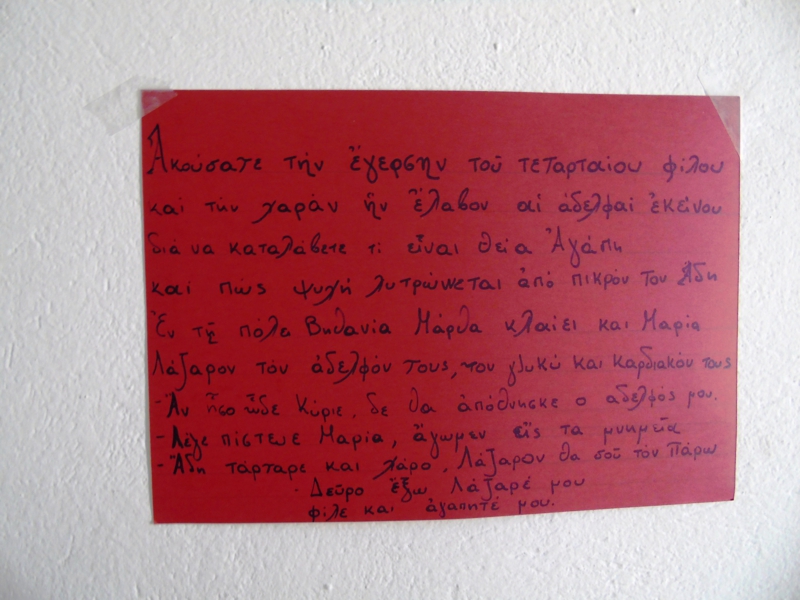 Ἀκούσατε τήν ἔγερσην τοῦ τεταρταίου φίλου
καί τήν χαράν ἥν ἔλαβον αἱ ἀδελφαί ἐκείνου
διά να καταλάβετε τι εἶναι θεία Ἀγάπη
καί πώς ψυχή λυτρώνεται ἀπό πικρόν τον Ἄδη
Ἐν τῇ πόλει Βηθανία Μάρθα κλαίει και Μαρία
Λάζαρον τόν ἀδελφόν τους, τον γλυκύ και καρδιακόν τους
-Ἄν ἦσο ὧδε Κύριε, δε θα ἀπόθνησκε ο αδελφός μου.
-Λέγε πίστευε Μαρία, ἄγωμεν εἰς τα μνημεῖα
-Ἄδη τάρταρε και χάρο, Λάζαρον θα σοῦ τόν πάρω
- Δεῦρο ἔξω Λάζαρέ μου
φίλε και ἀγαπητέ μου.